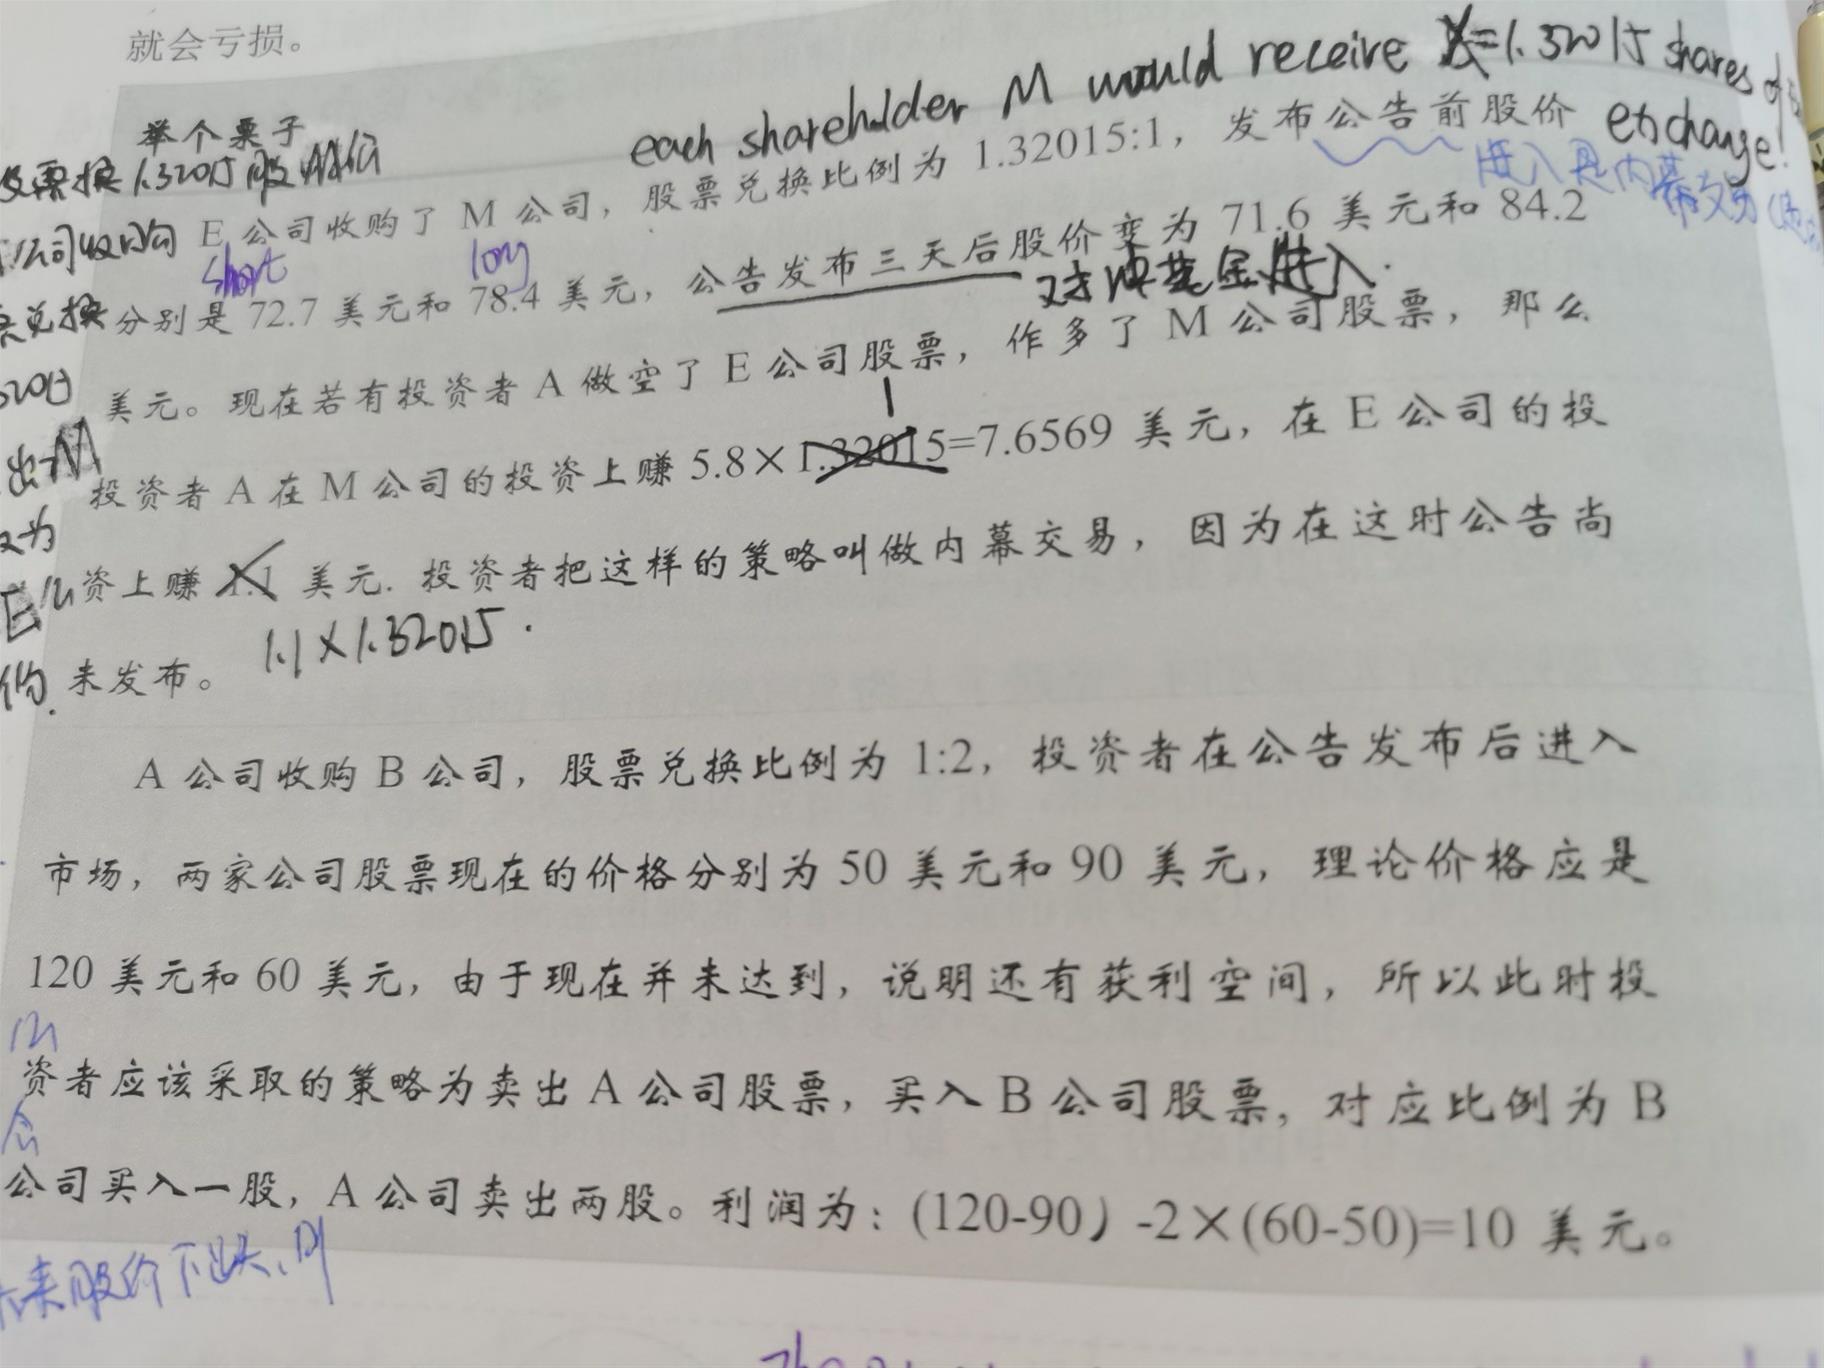 就会亏损。
each shareholder M would receive X=1.32015 shares of
exchange!
举个栗子
股票换1.32015股
E 公司收购了 M 公司，股票兑换比例为 1.32015:1，发布公告前股价
进入是内幕交易
公司收购
short
long
分别是 72.7 美元和 78.4 美元，公告发布三天后股价变为 71.6 美元和 84.2
对冲基金进入.
兑换
美元。现在若有投资者 A 做空了 E 公司股票，作多了 M 公司股票，那么
1
出M
投资者 A 在 M 公司的投资上赚 5.8×1.32015=7.6569 美元，在 E 公司的投
E公
资上赚 1.1 美元. 投资者把这样的策略叫做内幕交易，因为在这时公告尚
1.1×1.32015.
未发布。
A 公司收购 B 公司，股票兑换比例为 1:2，投资者在公告发布后进入
市场，两家公司股票现在的价格分别为 50 美元和 90 美元，理论价格应是
120 美元和 60 美元，由于现在并未达到，说明还有获利空间，所以此时投
资者应该采取的策略为卖出 A 公司股票，买入 B 公司股票，对应比例为 B
公司买入一股，A 公司卖出两股。利润为：(120-90）-2×(60-50)=10 美元。
未来股价下跌,则